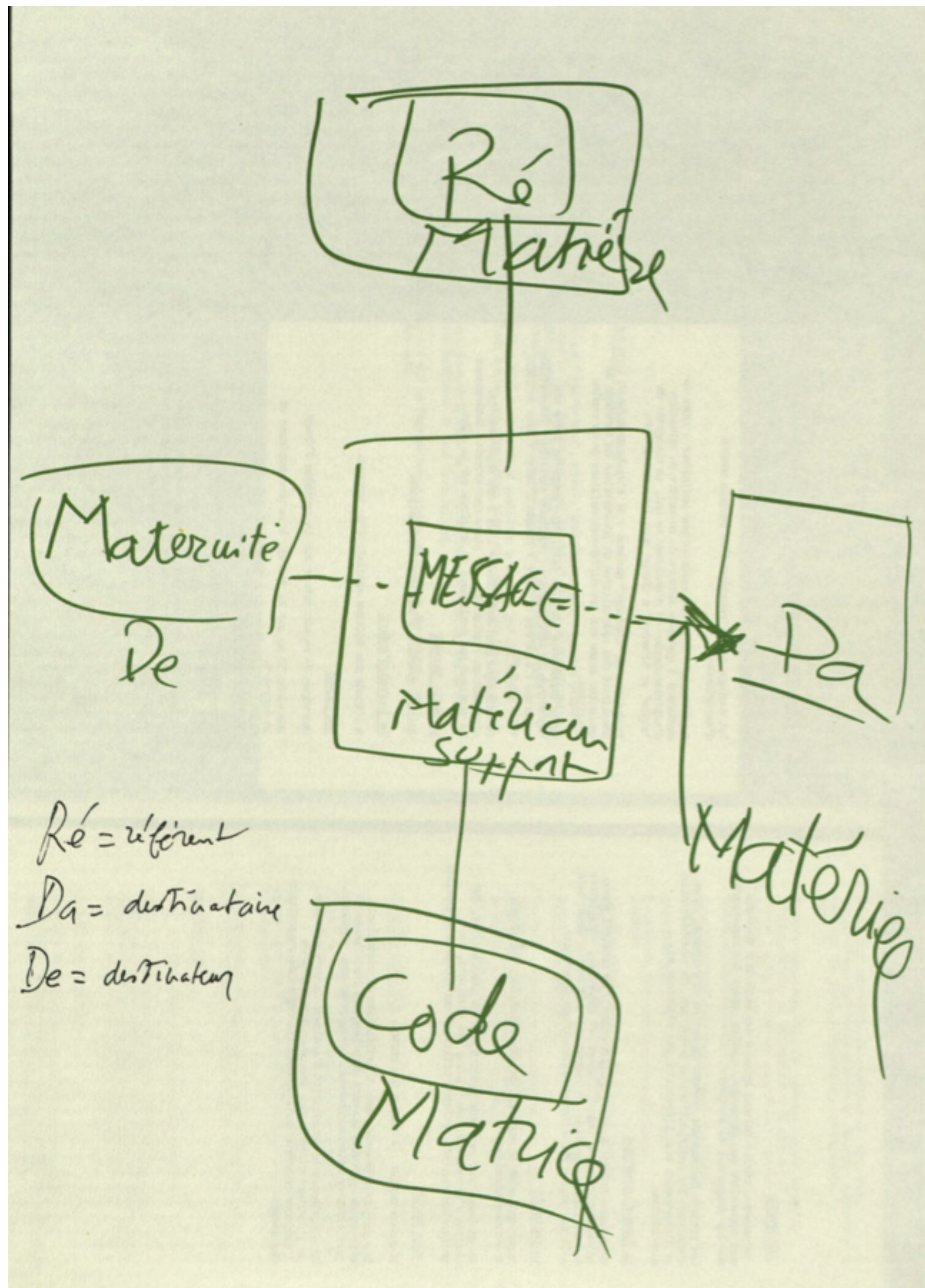 Ré
Matière
Maternité
De
MESSAGE
Matériau
support
Da
Matériel
Ré = référent
Da = destinataire
De = destinateur
Code
Matrice